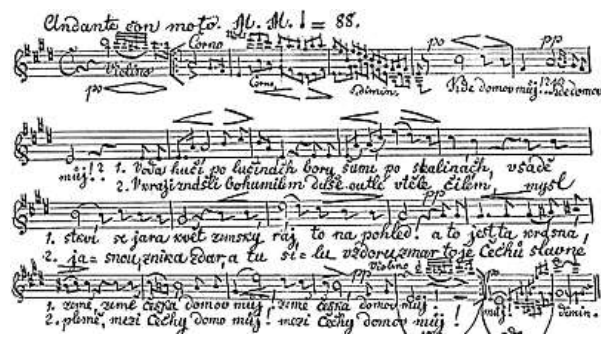 Andante con moto. M. M. ♩ = 88.
Corno
Violino
Corno.
dimin.
po
pp
po
Kde domov můj!? Kde domov
můj!? 1. Voda hučí po lučinách bory šumí po skalinách, v sádě
2. V kraji znáš-li bohumilém duše outlé v těle čilém, mysl
pp
1. stkví se jara květ zemský ráj to na pohled! a to jest ta krásná,
2. ja=snou, znik a zdar, a tu sí=lu vzdoru zmar to je Čechů slavné
Violino
pp
1. země, země česka domov můj, země česka domov můj!
2. plémě, mezi Čechy domov můj! mezi Čechy domov můj!
můj!
dimin.